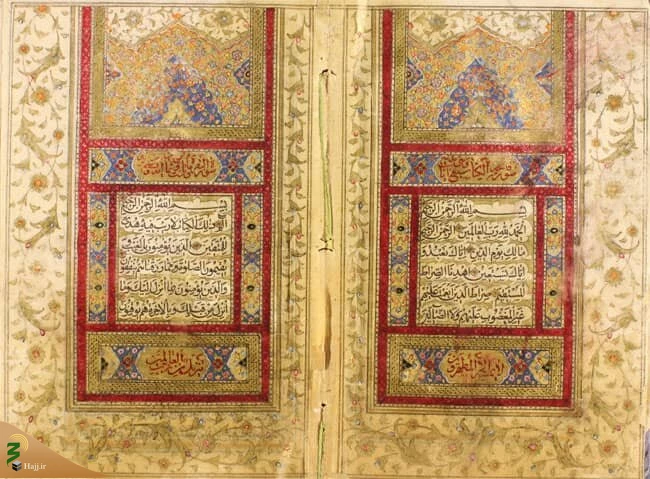 بسم الله الرحمن الرحيم
الحمد لله رب العالمين الرحمن الرحيم
مالك يوم الدين اياك نعبد و
اياك نستعين اهدنا الصراط
المستقيم صراط الذين انعمت عليهم
غير المغضوب عليهم ولا الضالين
لا يمسه الا المطهرون
بسم الله الرحمن الرحيم
الم ذلك الكتاب لا ريب فيه هدى
للمتقين الذين يؤمنون بالغيب و
يقيمون الصلوة ومما رزقناهم ينفقون
والذين يؤمنون بما انزل اليك وما
انزل من قبلك وبالاخرة هم يوقنون
تنزيل من رب العالمين
Hajj.ir